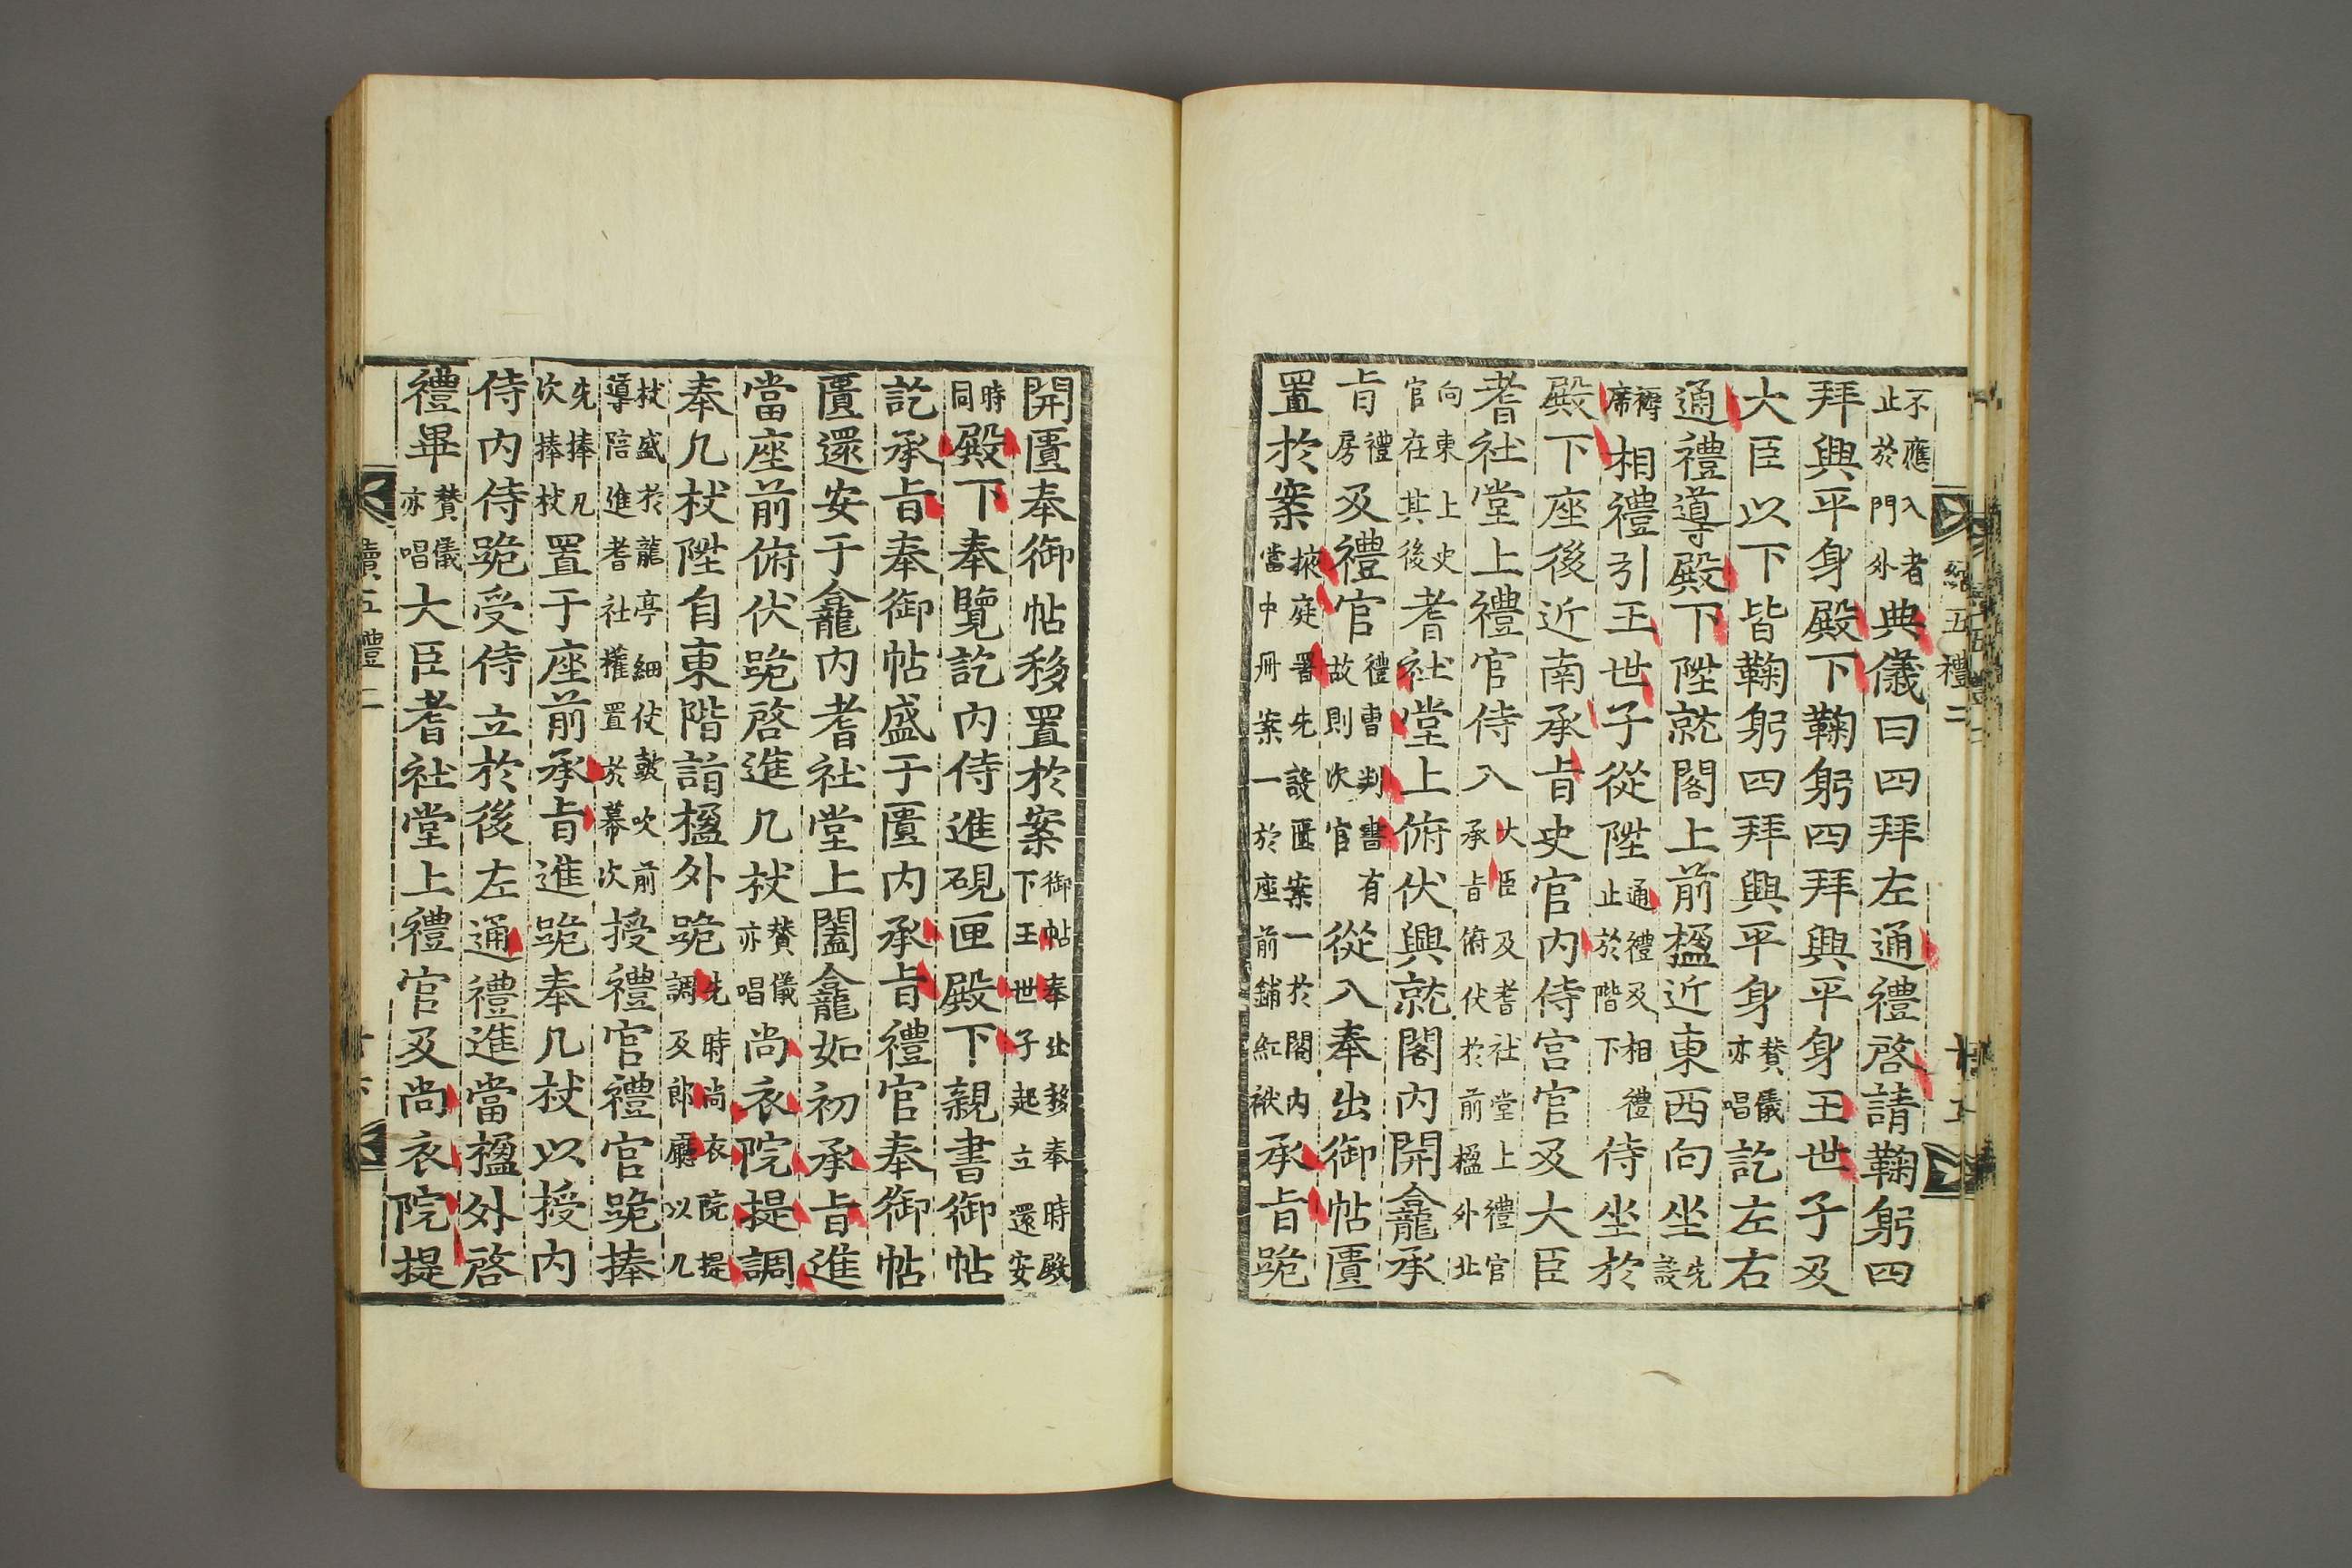 不應入者止於門外典儀曰四拜左通禮啓請鞠躬四
拜興平身殿下鞠躬四拜興平身王世子及
大臣以下皆鞠躬四拜興平身贊儀亦唱訖左右
通禮導殿下陞就閤上前楹近東西向坐先設
褥席相禮引王世子從陞通禮及相禮止於階下侍坐於
殿下座後近南承旨史官內侍宮官及大臣
耆社堂上禮官侍入大臣及耆社堂上禮官承旨俯伏於前楹外北
向東上史官在其後耆社堂上俯伏興就閤內開龕承
旨禮房及禮官禮曹判書有故則次官從入奉出御帖匱
置於案掖庭署先設匱案一於閤內當中冊案一於座前鋪紅袱承旨跪
續五禮二
十五
開匱奉御帖移置於案御帖奉出移奉時殿下王世子起立還安
時同殿下奉覽訖內侍進硯匣殿下親書御帖
訖承旨奉御帖盛于匱內承旨禮官奉御帖
匱還安于龕內耆社堂上闔龕如初承旨進
當座前俯伏跪啓進几杖贊儀亦唱尚衣院提調
奉几杖陞自東階詣楹外跪先時尚衣院提調及郞廳以几
杖盛於龍亭細仗鼓吹前導陪進耆社權置於幕次授禮官禮官跪捧
先捧几次捧杖置于座前承旨進跪奉几杖以授內
侍內侍跪受侍立於後左通禮進當楹外啓
禮畢贊儀亦唱大臣耆社堂上禮官及尚衣院提
續五禮二